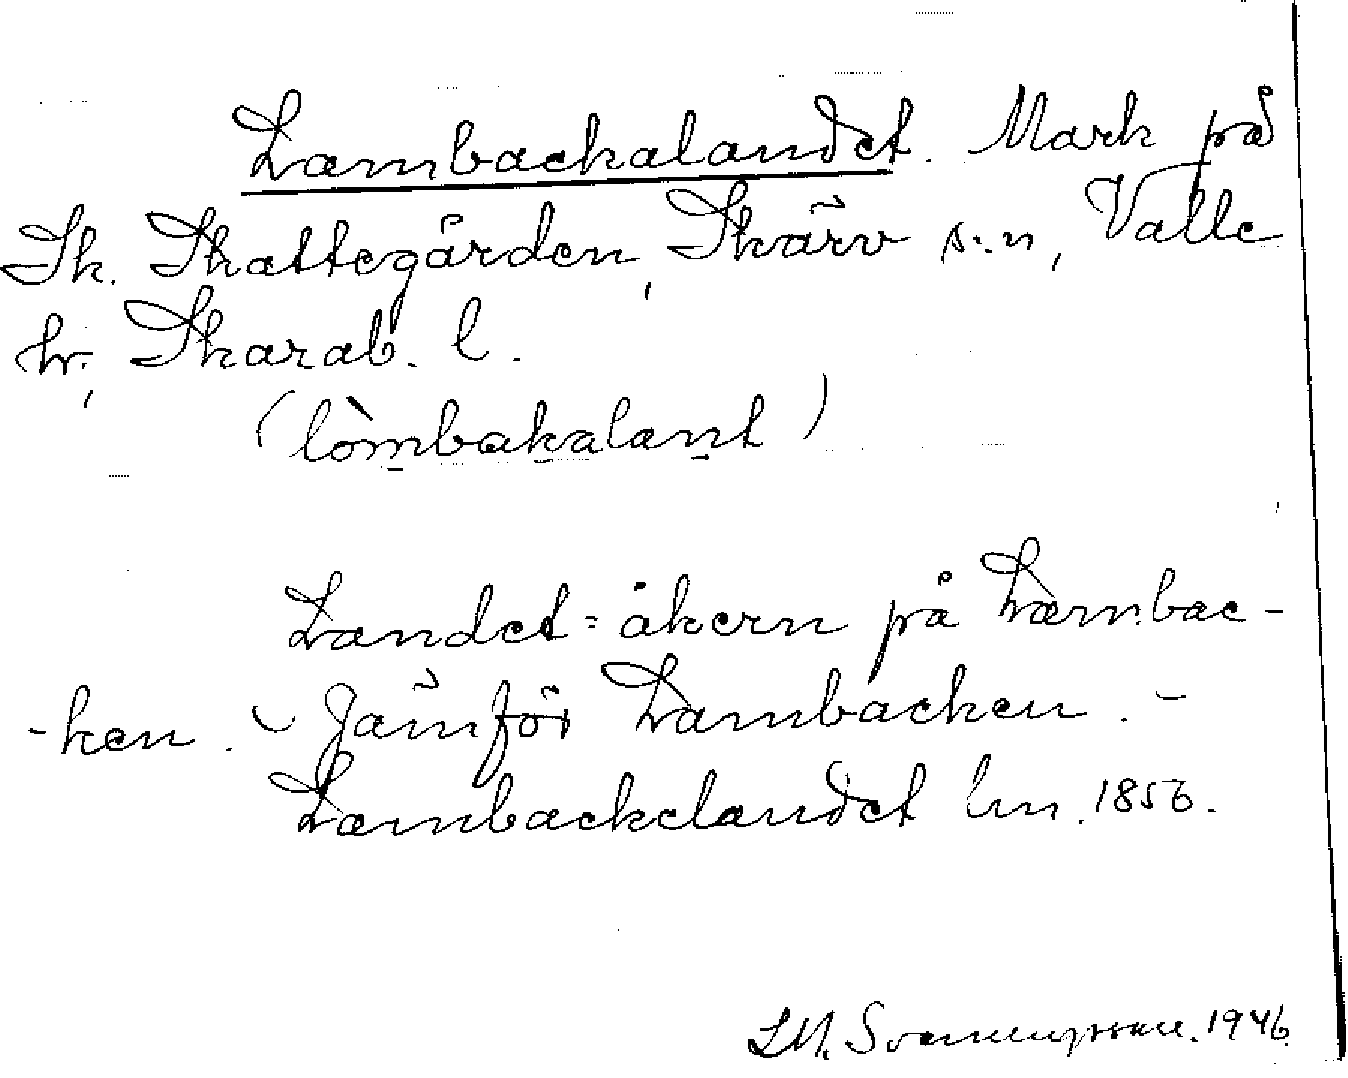 Lambackalandet. Mark på
Sk. Skattegården, Skärv s:n, Valle
hr, Skarab. l.
(lòmbakalant)
Landet = åkern på Lambac-
-ken. - Jämför Lambacken. -
Lambackelandet lm. 1856.
1946